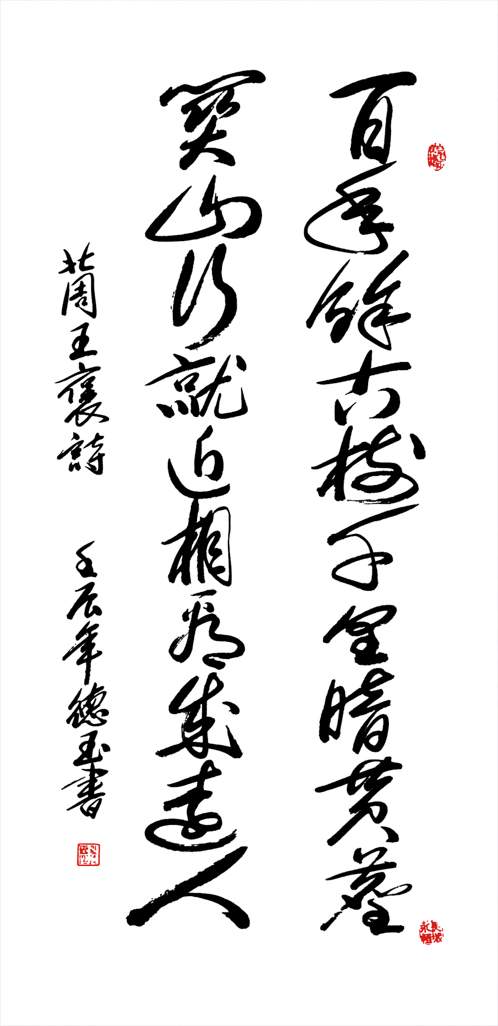 百年餘古樹千里暗黄塵
關山行就近相看成遠人
北周王褒詩 壬辰年德玉書